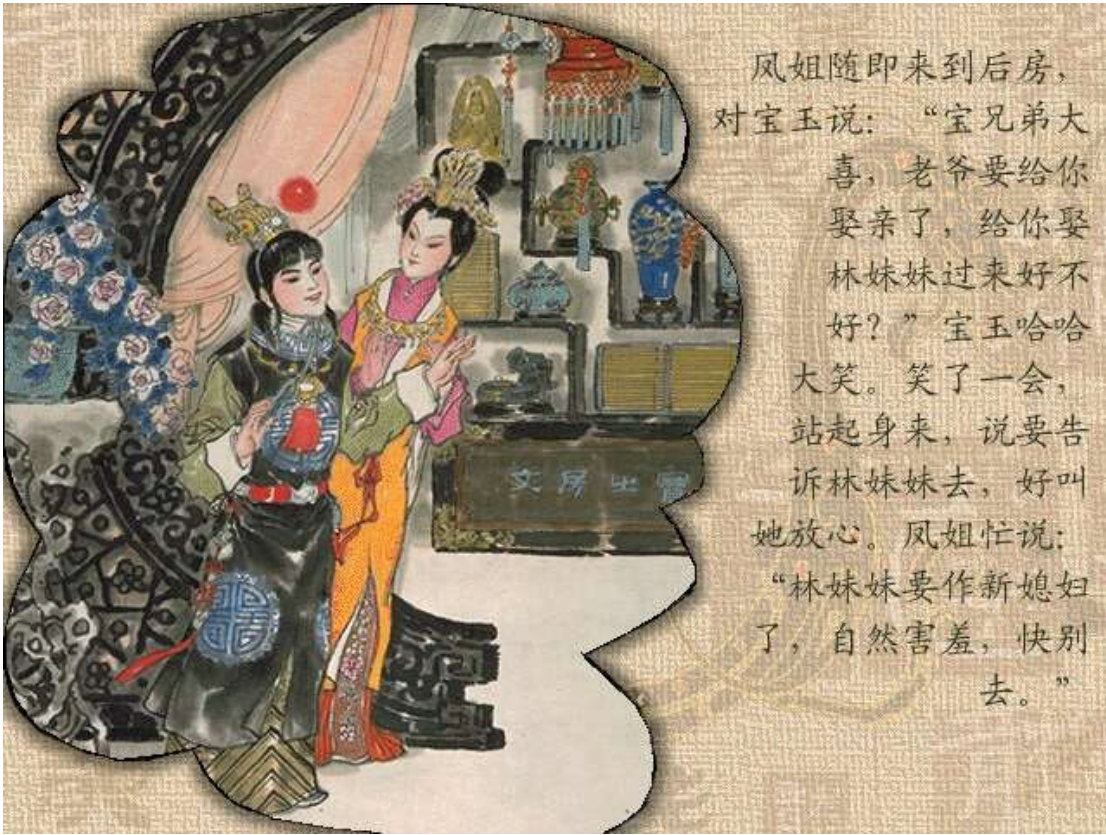 凤姐随即来到后房，
对宝玉说：“宝兄弟大
喜，老爷要给你
娶亲了，给你娶
林妹妹过来好不
好？”宝玉哈哈
大笑。笑了一会，
站起身来，说要告
诉林妹妹去，好叫
她放心。凤姐忙说：
“林妹妹要作新媳妇
了，自然害羞，快别
去。”